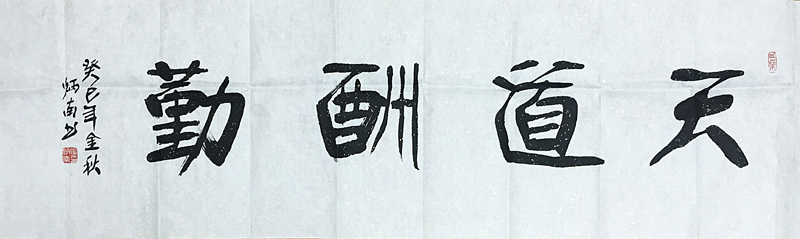 天道酬勤
癸巳年金秋
炳南书